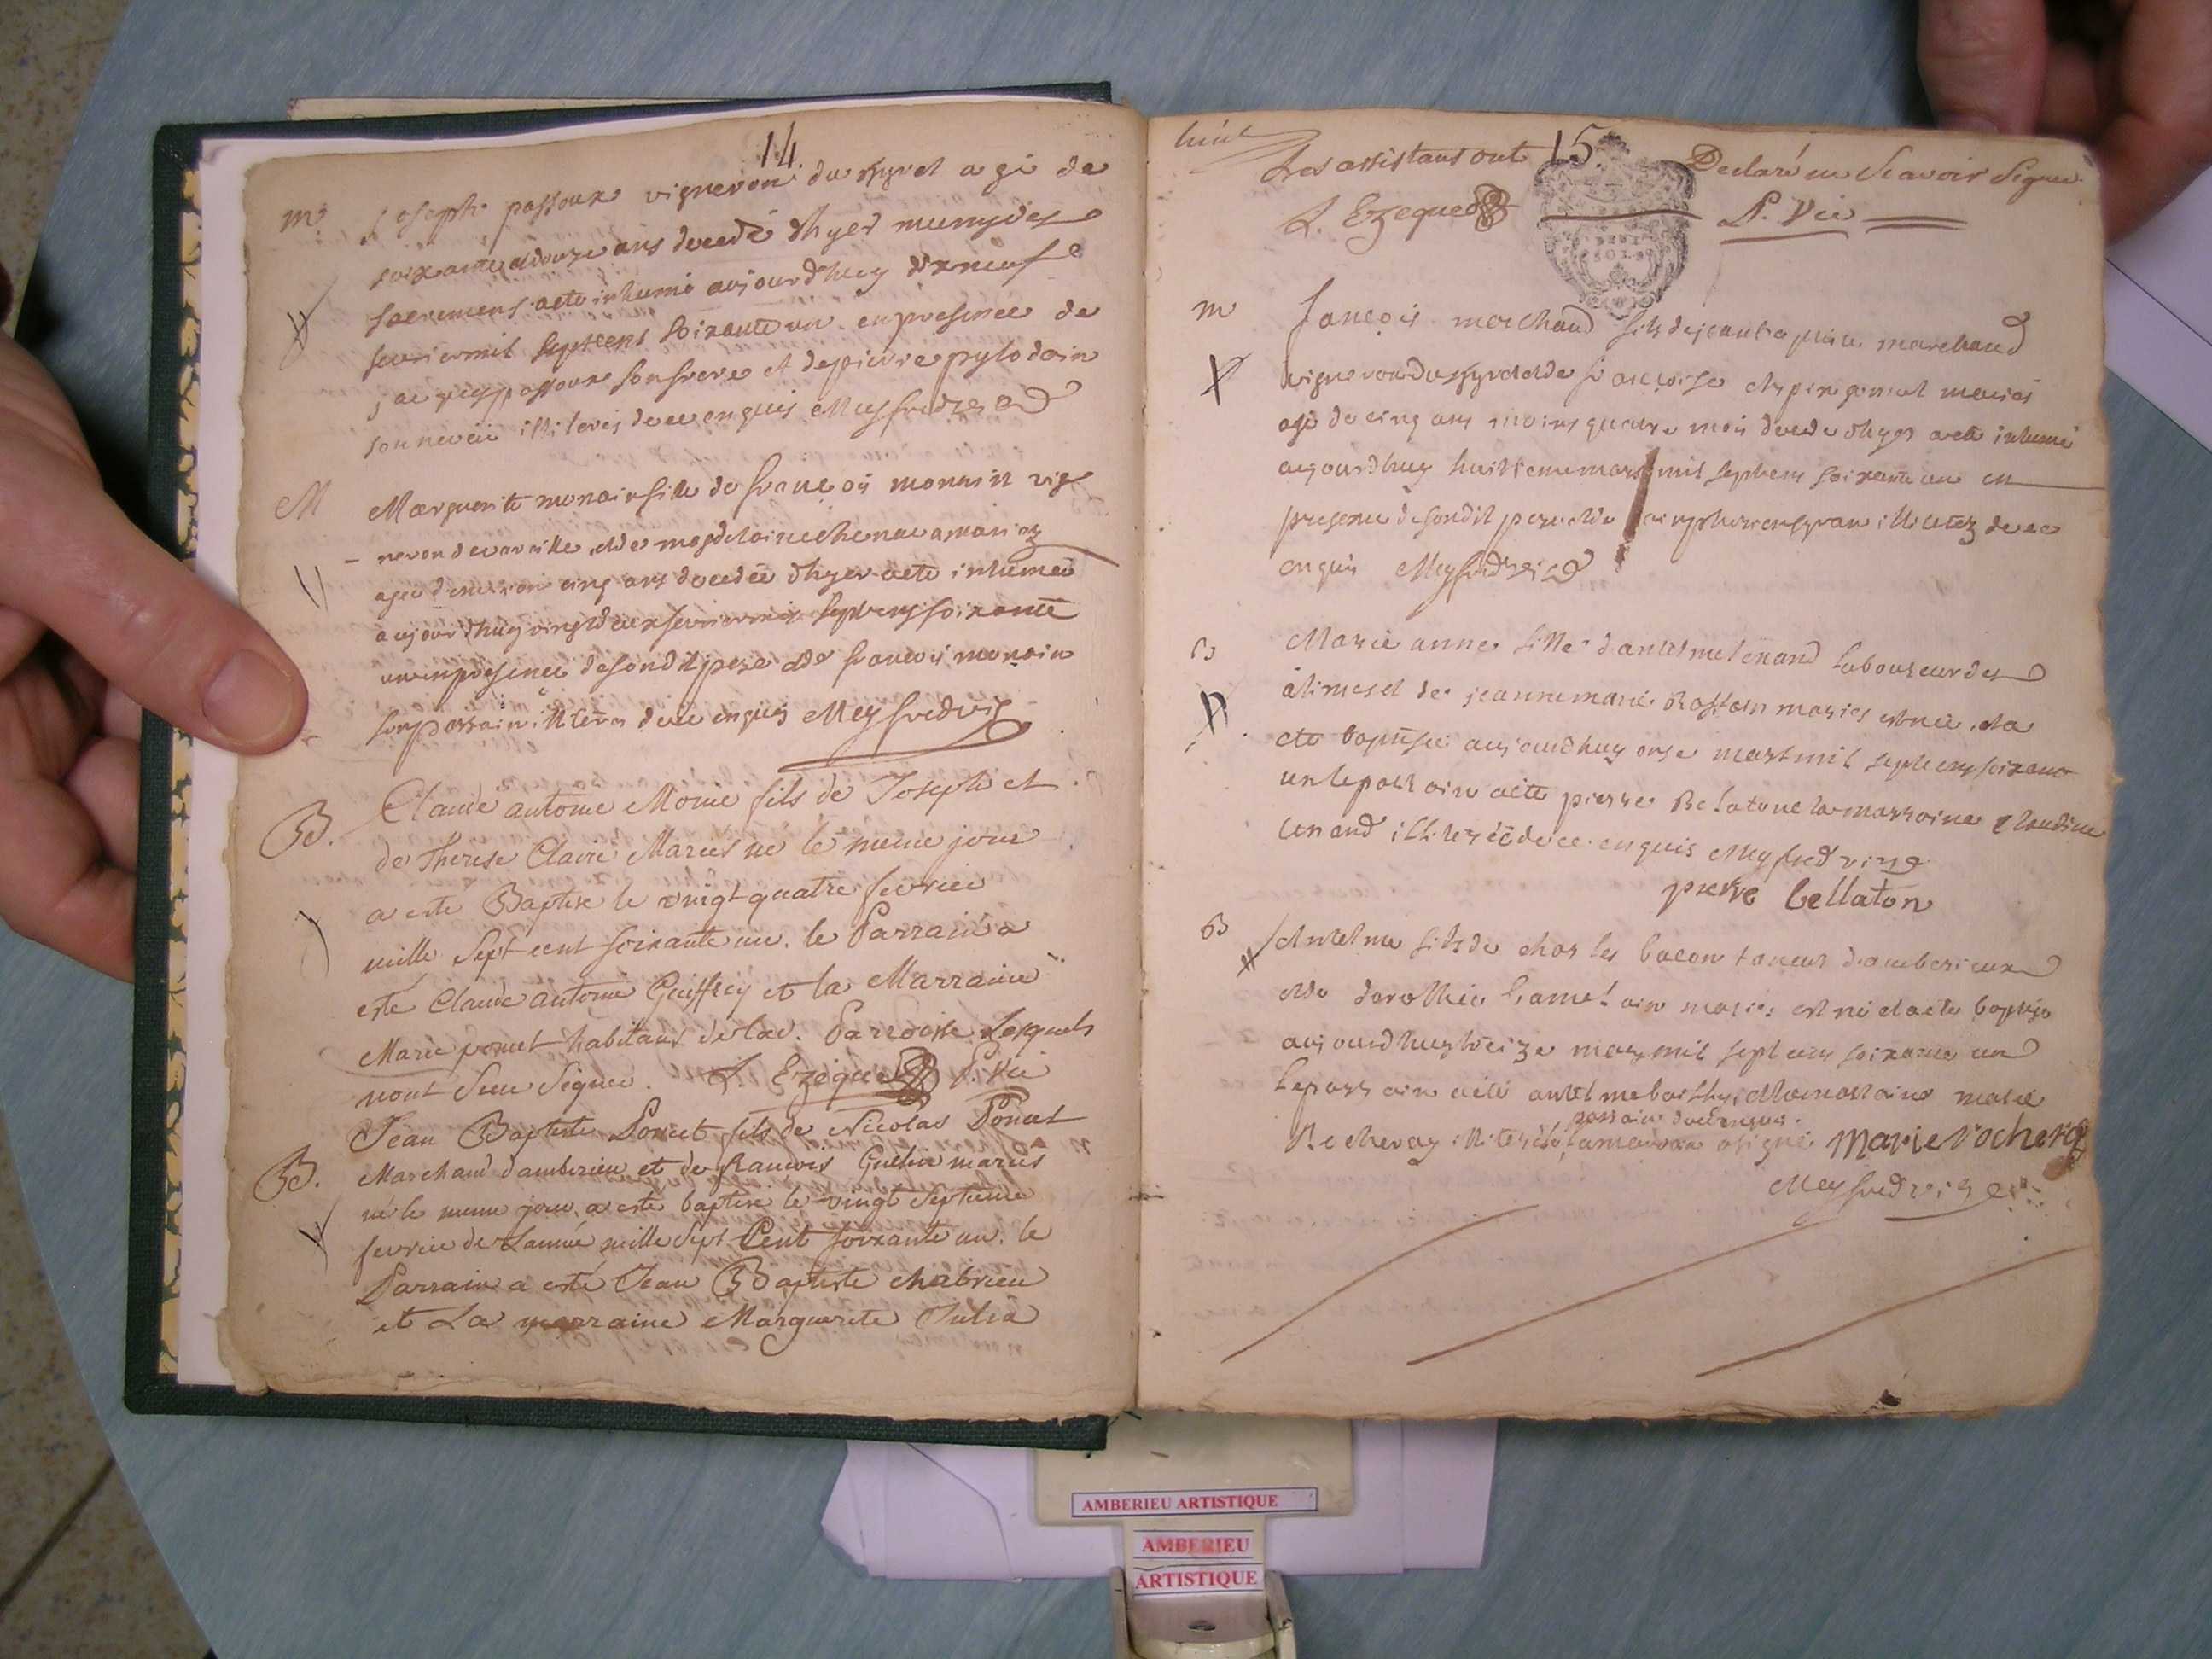 14.
m
joseph passoux vigneron du agé de
soixante et douze ans decedé dhyer muny des
sacremens a ete inhumé aujourdhuy dixneuf
fevrier mil septcens soixante un en presence de
passoux son frere et de pierre
son neveu illiterés de ce enquis Meyfredvice
M
Marguerite monain fille de françois monain vig
neron de et de magdelaine mariez
agée denviron cinq ans decedée dhyer a ete inhumée
aujourdhuy vingtdeux fevrier mil septcens soixante
un en presence de sondit pere et de francois monain
son parrain illiterés de ce enquis Meyfredvice
B.
Claude antoine Monie fils de Joseph et
de Therese Claire Mariés né le meme jour
a esté Baptisé le vingt-quatre fevrier
mille sept-cent soixante un. le Parrain a
esté Claude antoine Guiffrey et la Marraine
Marie pomet habitans de lad. Parroisse Lesquels
nont sceu signer. L. Ezeques P. Vic
B.
Jean Baptiste Poncet fils de Nicolas Poncet
Marchand d'amberieu et de francois mariés
né le meme jour a esté baptisé le vingt septieme
fevrier de L'année mille sept Cent soixante un. le
Parrain a esté Jean Baptiste chabrieu
et La marraine Marguerite Julia
huit
Les assistans ont 15. Declaré ne Scavoir Signer
L. Ezeques P. Vic
m
françois marchand fils de jean marchand
vigneron du et de francoise mariés
agé de cinq ans moins quatre mois decedé dhyer a ete inhumé
aujourdhuy huitieme mars mil septcens soixante un en
presence de sondit pere et de illiterez de ce
enquis Meyfredvice
B
Marie anne fille d'antelme Lenand laboureur des
alimes et de jeanne marie Rostain mariés est née et a
ete baptisée aujourdhuy onze mars mil septcens soixante
un le parrain a ete pierre Belaton et la marraine Claudine
Lenand illiterée de ce enquis Meyfredvice
pierre bellaton
B
Antelme fils de charles bacon taneur d'amberieux
et de dorothée mariés est né et a ete baptisé
aujourdhuy treize mars mil septcens soixante un
le parrain a ete antelme et la marraine marie
Rocheray illiteré le parrain de ce enquis. la marraine a signé Marie rocheray
Meyfredvice
AMBERIEU ARTISTIQUE
AMBERIEU
ARTISTIQUE